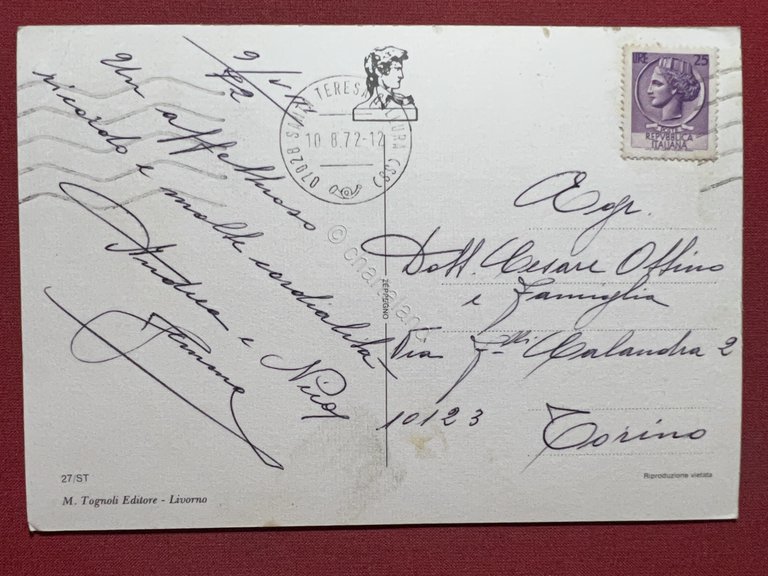 9/VIII
72
Un affettuoso
ricordo e molte cordialità
Andrea e Nico
07028 S. TERESA GALLURA (SS)
10.8.72-12
LIRE 25
POSTE
REPVBBLICA
ITALIANA
Egr.
Dott. Cesare Offino
e Famiglia
Via F.lli Calandra 2
10123 Torino
ZEPPSIGNO
27/ST
M. Tognoli Editore - Livorno
Riproduzione vietata